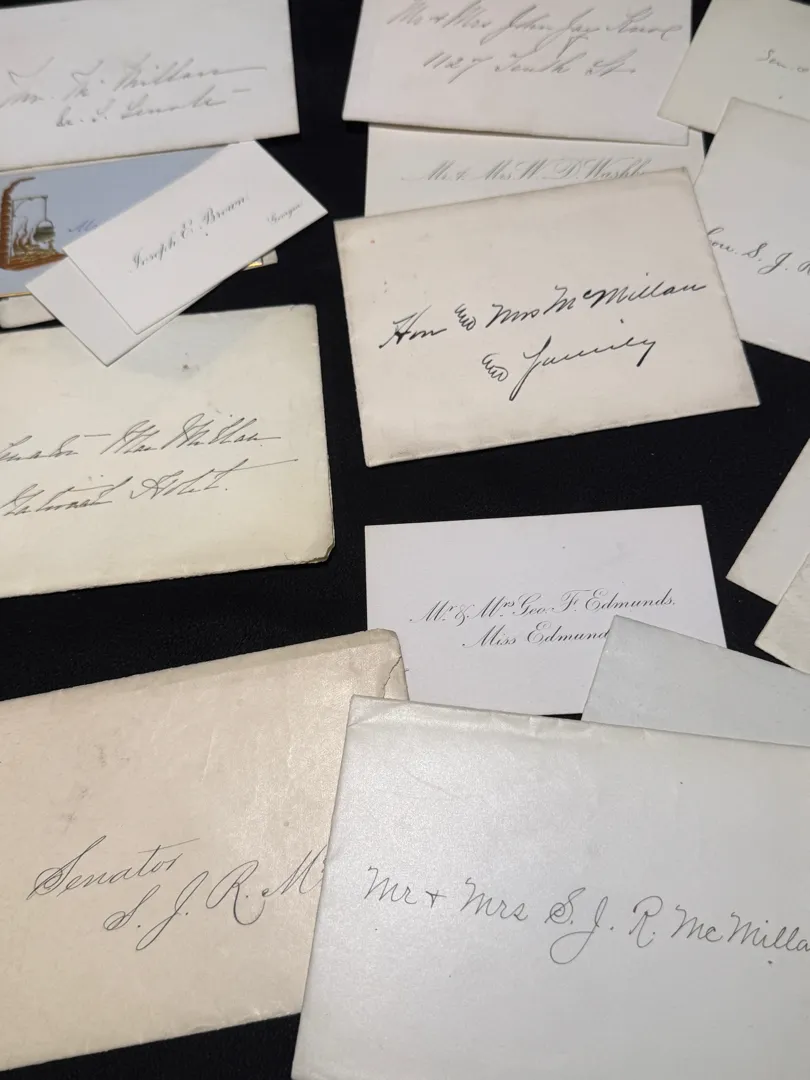 Mr. McMillan
U. S. Senate
Mr & Mrs John Jay Knox
1127 Tenth St
Sen
Mr. & Mrs. W. D. Washb
Joseph E. Brown
Georgia
Hon. S. J. R
Hon and Mrs McMillan
and Family
Senator McMillan
National Hotel.
Mr. & Mrs. Geo. F. Edmunds.
Miss Edmund
Senator
S. J. R. Mc
Mr & Mrs S. J. R. McMilla